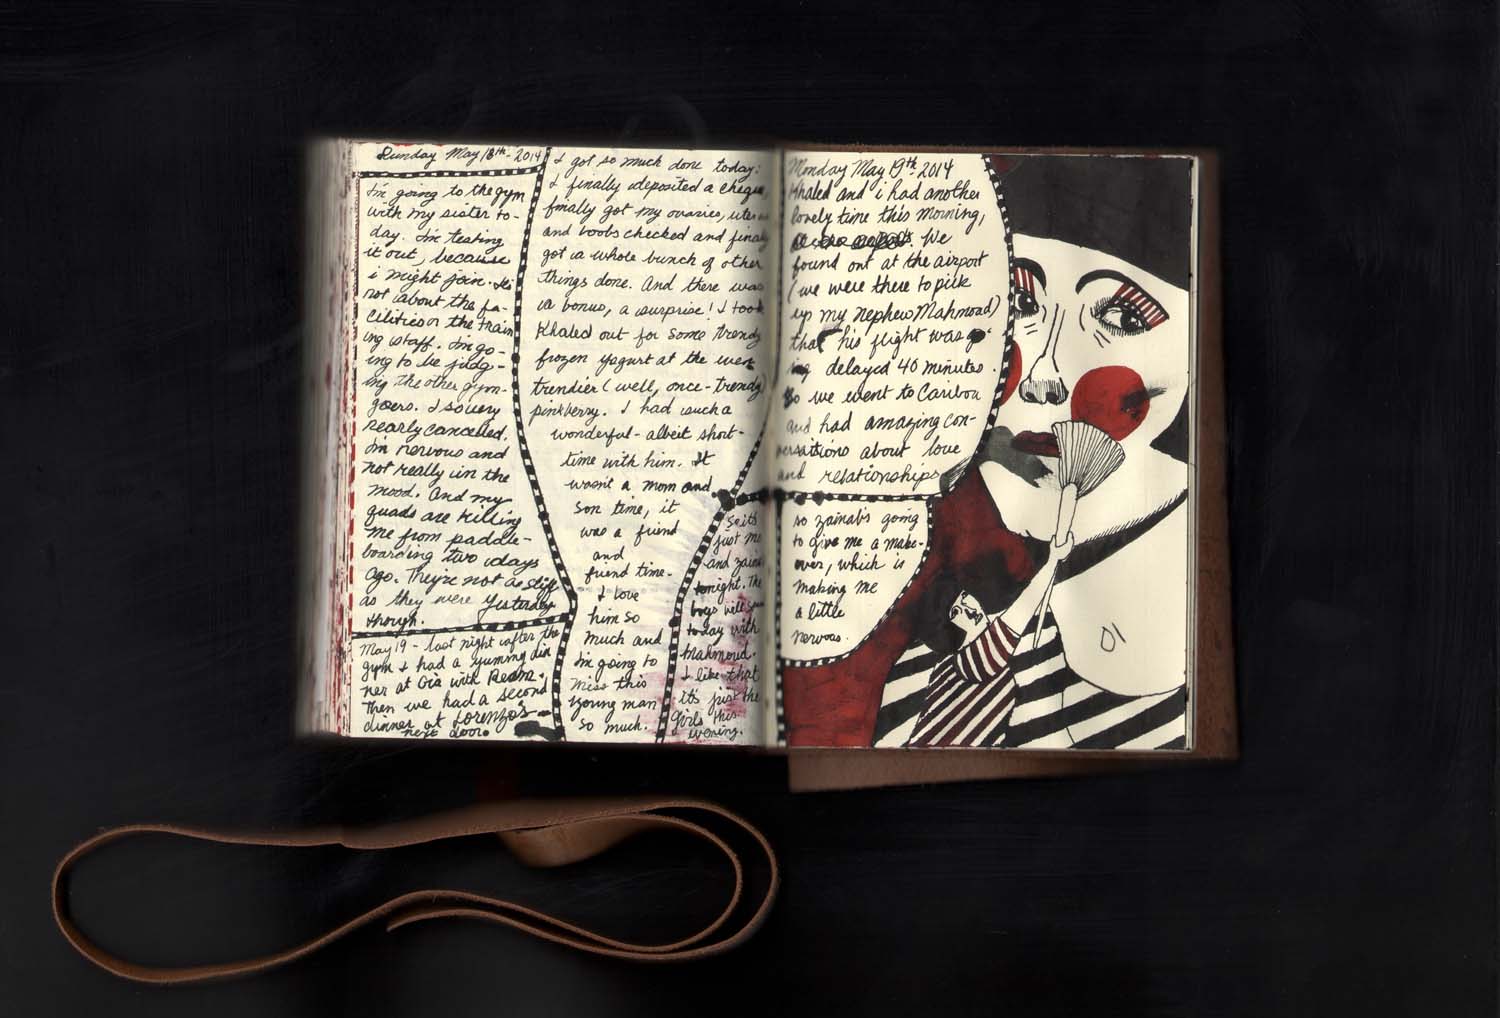 Sunday May 18th - 2014
I'm going to the gym
with my sister to-
day. I'm testing
it out, because
i might join. It's
not about the fa-
cilities or the train
ing staff. I'm go-
ing to be judg-
ing the other gym-
goers. I so very
nearly cancelled.
I'm nervous and
not really in the
mood. And my
quads are killing
me from paddle-
boarding two days
ago. They're not as stiff
as they were yesterday
though.
May 19 - last night after the
gym I had a yummy din
ner at Gia with Reem.
Then we had a second
dinner at Lorenzo's
next door.
I got so much done today:
I finally deposited a cheque,
finally got my ovaries, uterus
and boobs checked and finally
got a whole bunch of other
things done. And there was
a bonus, a surprise! I took
Khaled out for some trendy
frozen yogurt at the even
trendier (well, once-trendy)
pinkberry. I had such a
wonderful - albeit short-
time with him. It
wasn't a mom and
son time, it
was a friend
and
friend time-
I love
him so
much and
I'm going to
miss this
young man
so much.
So it's
just me
and zainab
tonight. The
boys will
today with
Mahmoud.
I like that
it's just the
girls this
evening.
Monday May 19th 2014
Khaled and i had another
lovely time this morning,
We
found out at the airport
(we were there to pick
up my nephew Mahmoud)
that his flight was
delayed 40 minutes.
So we went to Caribou
and had amazing con-
versations about love
and relationships
so zainab's going
to give me a make-
over, which is
making me
a little
nervous.